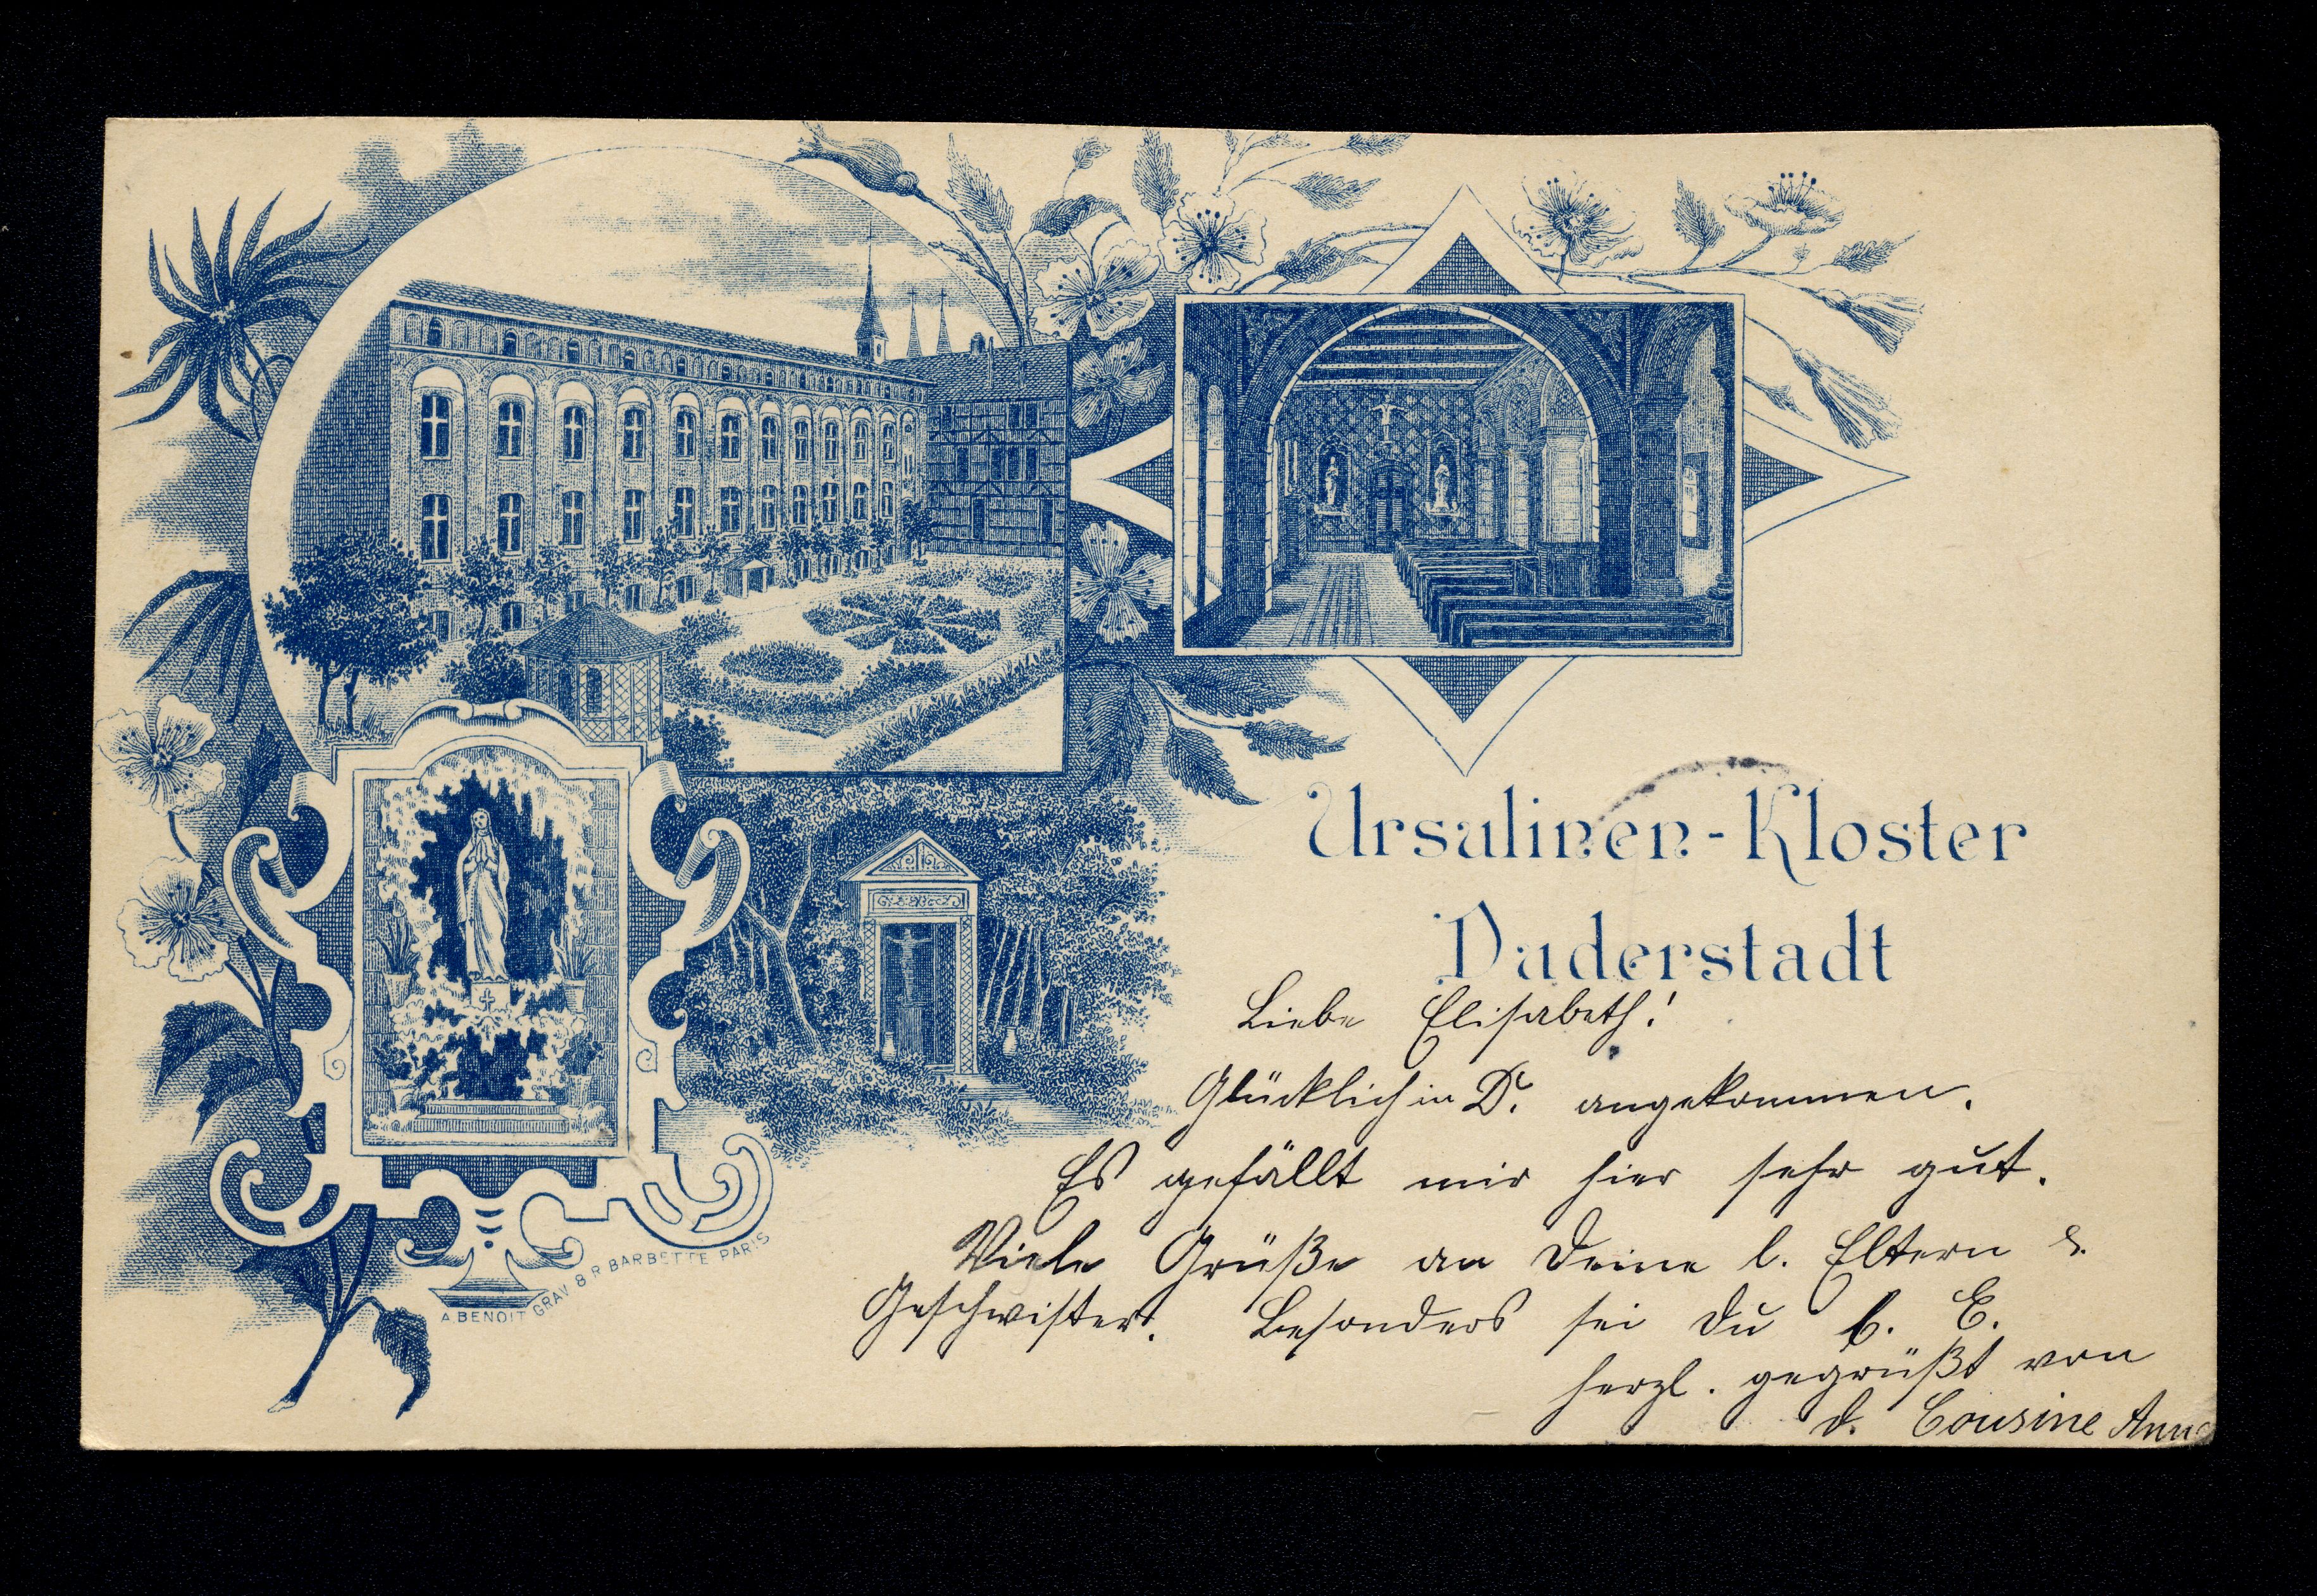 Ursulinen-Kloster
Duderstadt
Liebe Elisabeth!
Glücklich in D. angekommen.
Es gefällt mir hier sehr gut.
Viele Grüße an Deine l. Eltern &
Geschwister. Besonders sei Du l. E.
herzl. gegrüßt von
d. Cousine Anna
A BENOIT GRAV 8 R BARBETTE PARIS